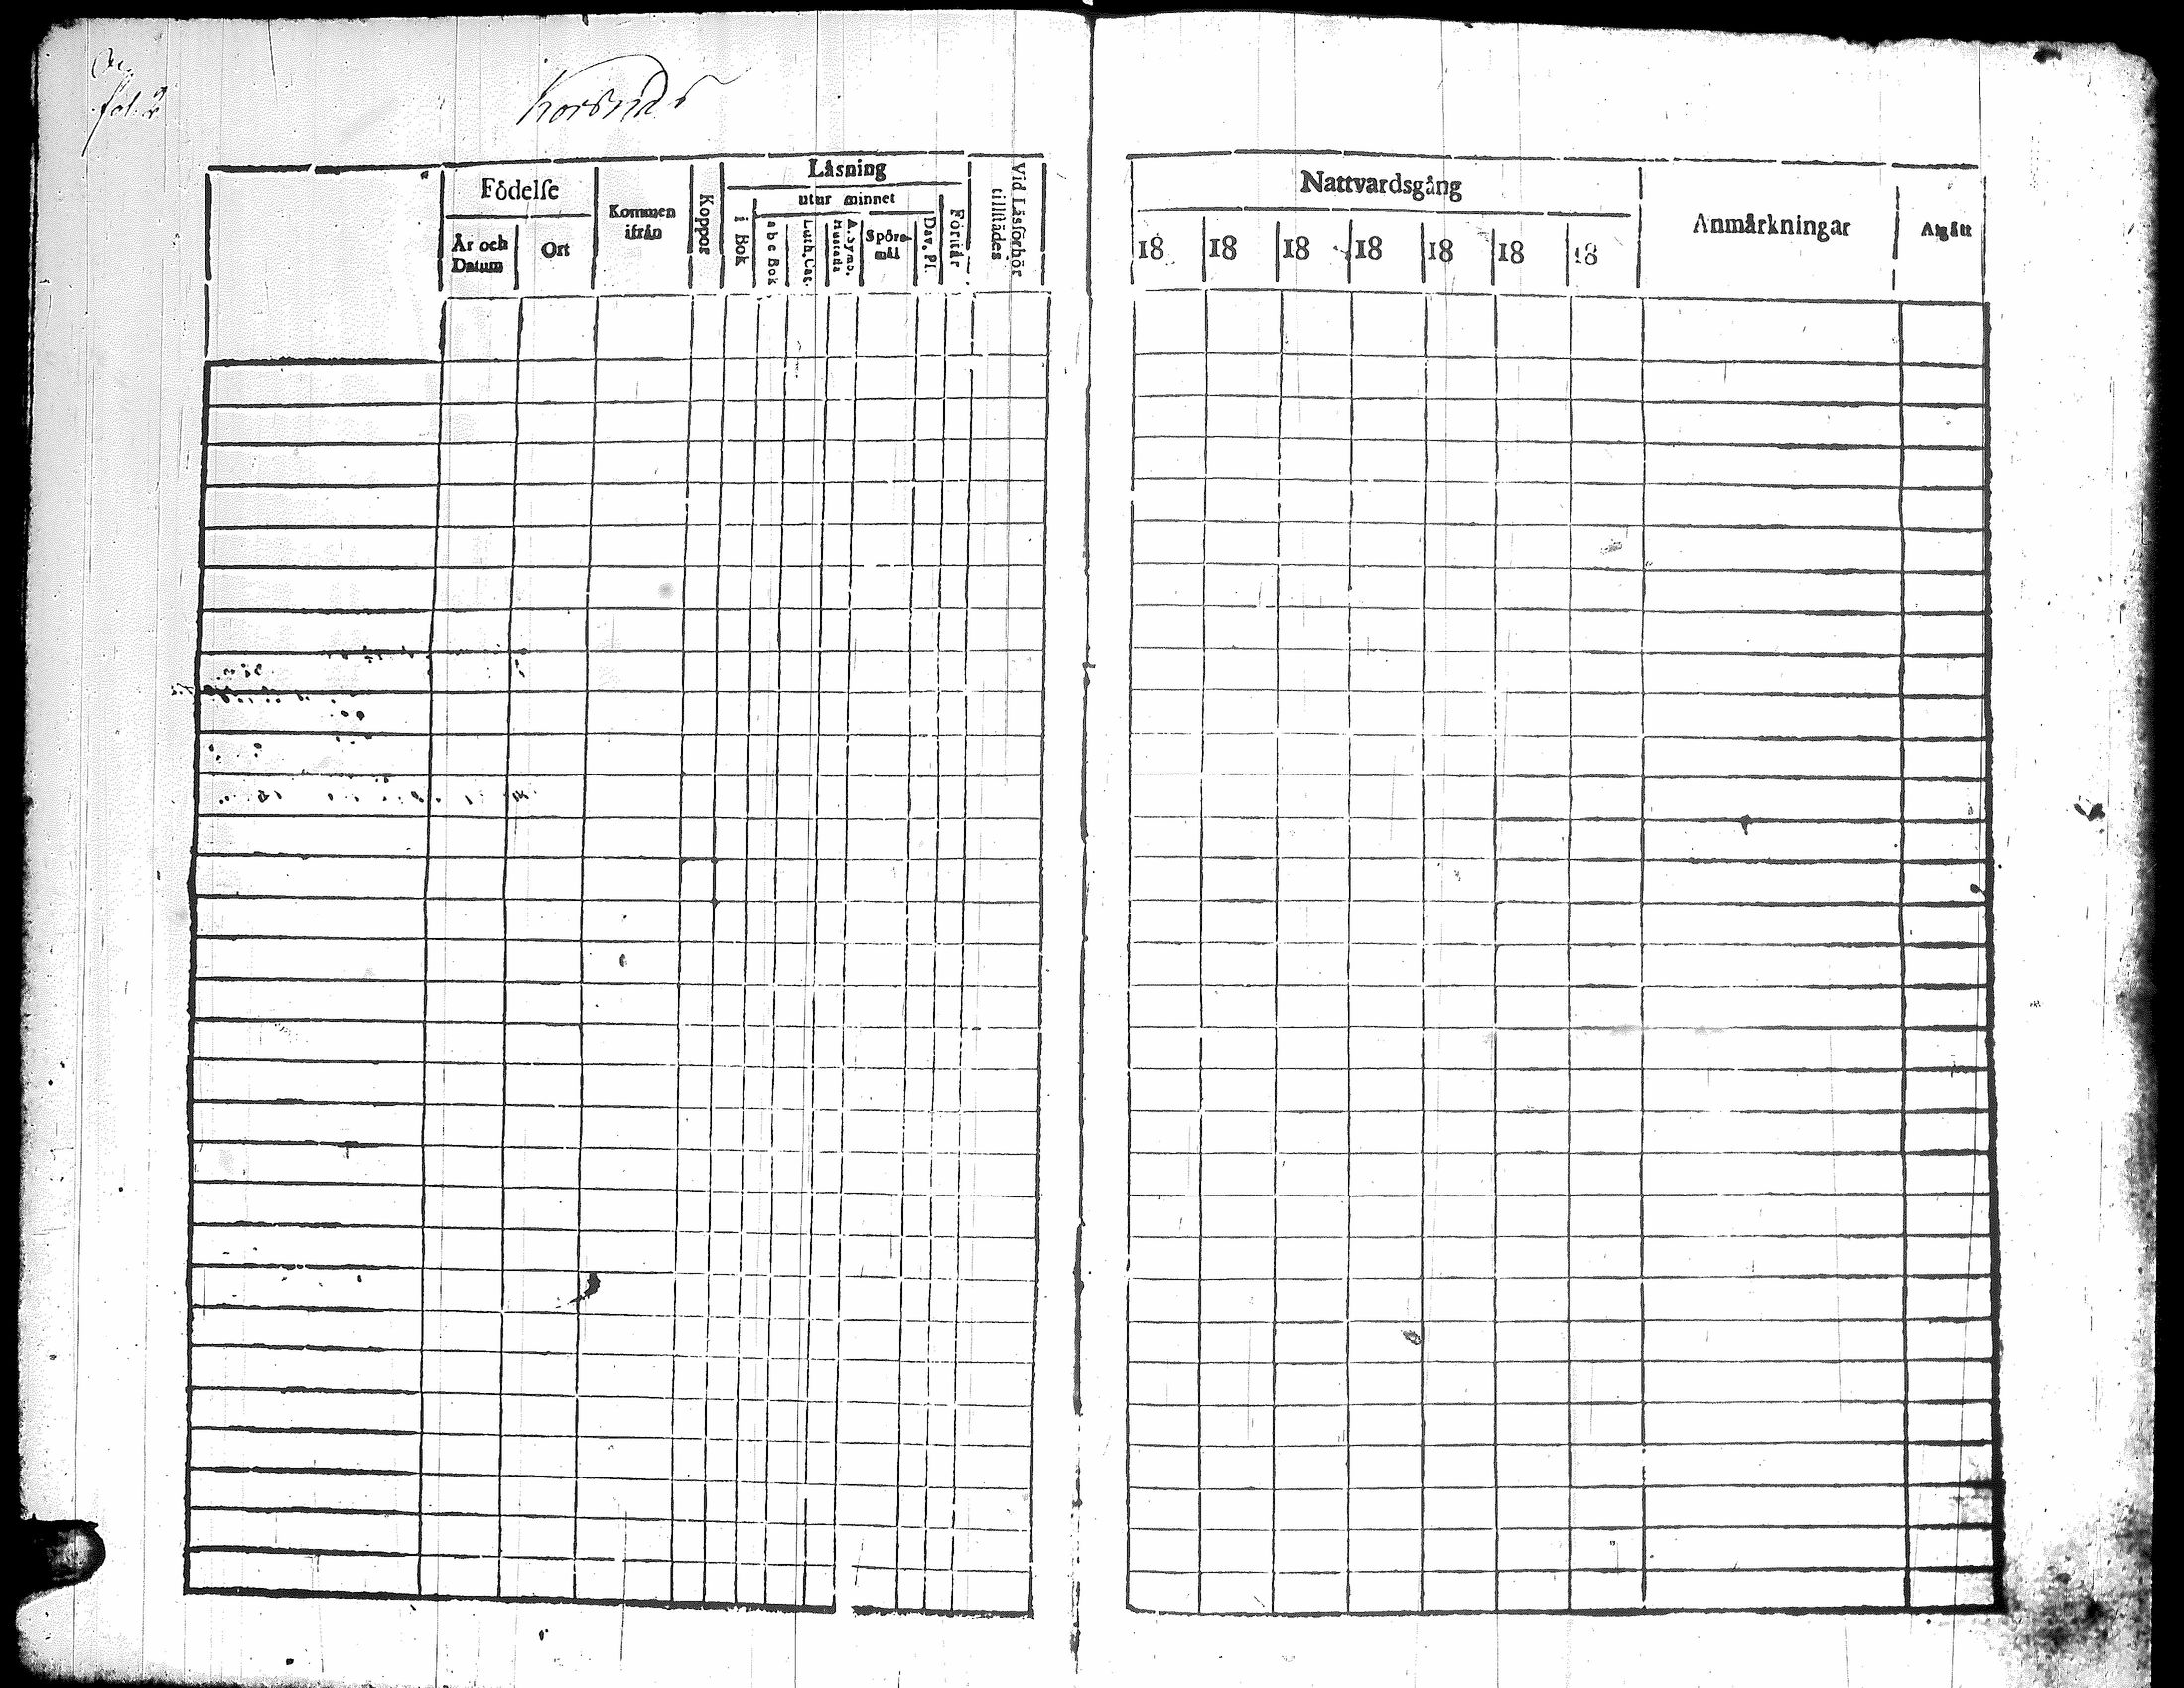 fol. 2
Korsnäs
Födelse
År och Datum
Ort
Kommen ifrån
Koppor
Läsning
i Bok
utur minnet
a b c Bok
Luth. Cat.
A. Symb.
Hustafla
Spörsmål
Dav. Ps.
Förstår
Vid Läsförhör tillstädes
Nattvardsgång
18 18 18 18 18 18 18
Anmärkningar
Afgått